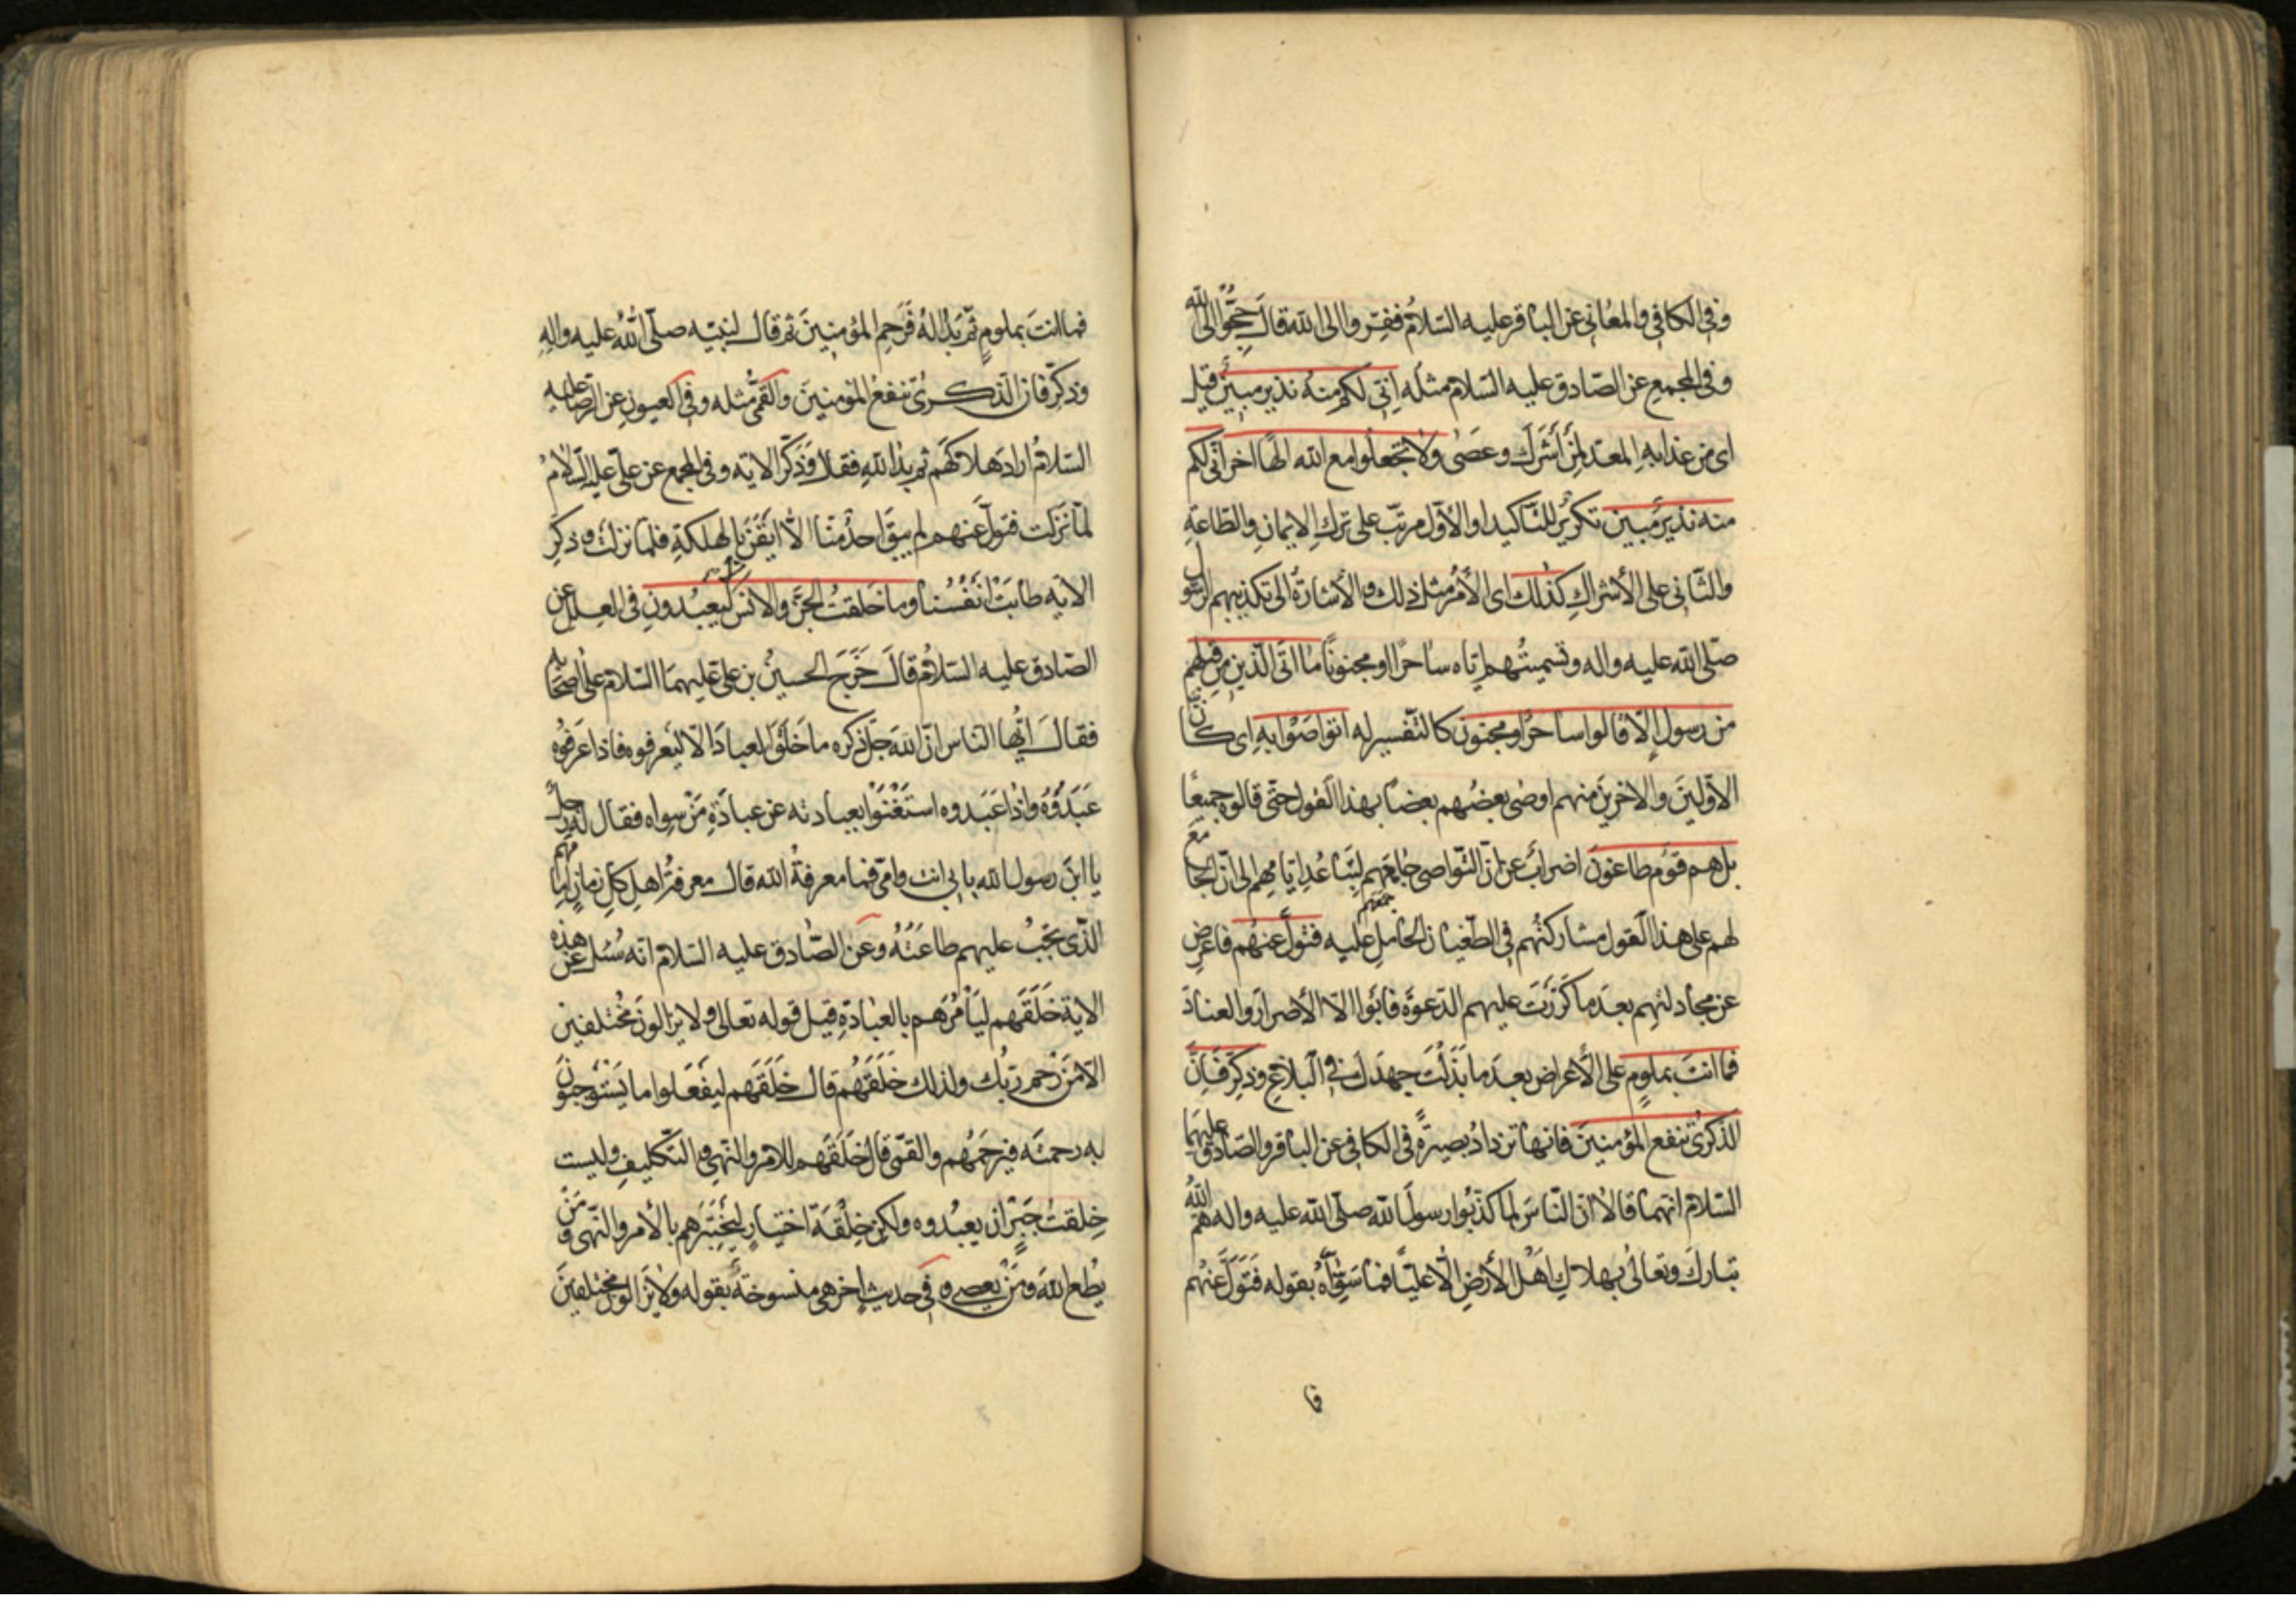 وفي الكافي والمعاني عن الباقر عليه السلام ففروا الى الله قال حجوا الى الله
وفي المجمع عن الصادق عليه السلام مثله اني لكم منه نذير مبين قيل
اي من عذابه المعد لمن أشرك وعصى ولا تجعلوا مع الله الها اخر اني لكم
منه نذير مبين تكرير للتاكيد او الأول مرتب على ترك الايمان والطاعة
والثاني على الأشراك كذلك اي الأمر مثل ذلك والأشارة الى تكذيبهم الرسول
صلى الله عليه واله وتسميتهم اياه ساحرا او مجنونا ما اتى الذين من قبلهم
من رسول إلا قالوا ساحر او مجنون كالتفسير له اتواصوا به اى كان
الأولين والاخرين منهم اوصى بعضهم بعضا بهذا القول حتى قالوه جميعا
بل هم قوم طاغون اضراب عن ان التواصي جامعهم لتباعد ايامهم الى ان الجامع
جمعهم
لهم على هذا القول مشاركتهم في الطغيان الحامل عليه فتول عنهم فاعرض
عن مجادلتهم بعد ما كررت عليهم الدعوة فابوا الا الأصرار والعناد
فما انت بملوم على الأعراض بعد ما بذلت جهدك في البلاغ وذكر فان
الذكرى تنفع المؤمنين فانها تزداد بصيرة في الكافي عن الباقر والصادق عليهما
السلام انهما قالا ان الناس لما كذبوا رسول الله صلى الله عليه واله هم الله
تبارك وتعالى بهلاك اهل الأرض الا عليا فما سواه بقوله فتول عنهم
فا
فما انت بملوم ثم بدا له فرحم المؤمنين ثم قال لنبيه صلى الله عليه واله
وذكر فان الذكرى تنفع المؤمنين والقمي مثله وفي العيون عن الرضا عليه
السلام اراد هلاكهم ثم بدا لله فقال وذكر الاية وفي المجمع عن علي عليه السلام
لما نزلت فتول عنهم لم يبق احد منا الا ايقن بالهلكة فلما نزلت وذكر
الاية طابت انفسنا وما خلقت الجن والانس ليعبدون في العلل عن
الصادق عليه السلام قال خرج الحسين بن علي عليهما السلام على اصحابه
فقال ايها الناس ان الله جل ذكره ما خلق العباد الا ليعرفوه فاذا عرفوه
عبدوه واذا عبدوه استغنوا بعبادته عن عبادة من سواه فقال له رجل
يا ابن رسول الله بابي انت وامي فما معرفة الله قال معرفة اهل كل زمان امامهم
الذي يجب عليهم طاعته وعن الصادق عليه السلام انه سئل عن هذه
الاية خلقهم ليأمرهم بالعبادة قيل قوله تعالى ولا يزالون مختلفين
الا من رحم ربك ولذلك خلقهم قال خلقهم ليفعلوا ما يستوجبون
به رحمته فيرحمهم والقمي قال خلقهم للامر والنهي والتكليف وليست
خلقت جبر ان يعبدوه ولكن خلقة اختيار ليختبرهم بالأمر والنهي ومن
يطع الله ومن يعصى وفي حديث اخر هي منسوخة بقوله ولا يزالون مختلفين